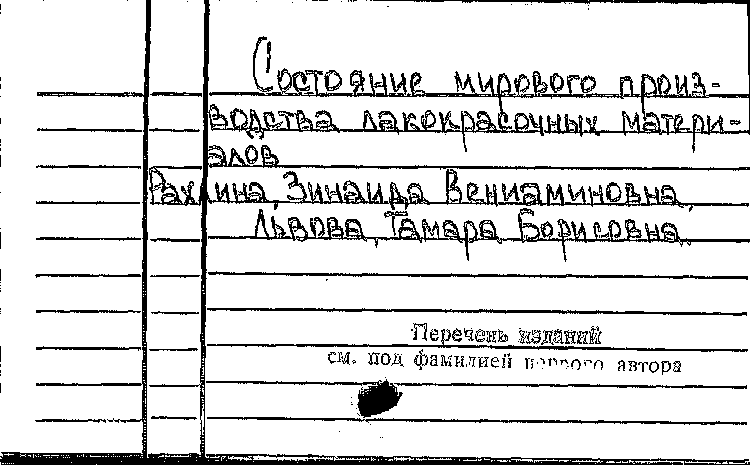 Состояние мирового произ-
водства лакокрасочных матери-
алов
Рахлина, Зинаида Вениаминовна,
Львова, Тамара Борисовна.
Перечень изданий
см. под фамилией первого автора